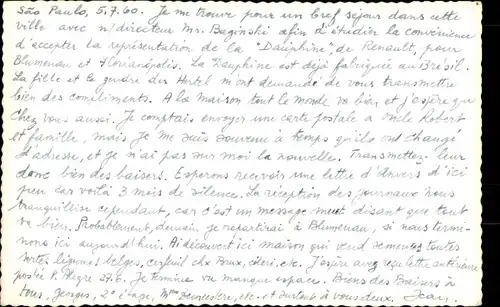 São Paulo, 5.7.60. Je me trouve pour un bref séjour dans cette
ville avec n/directeur Mr. Baginski afin d'étudier la convenience
d'accepter la représentation de la "Dauphine", de Renault, pour
Blumenau et Florianópolis. La Dauphine est déjà fabriquée au Brésil.
La fille et le gendre des Hertel m'ont demandé de vous transmettre
bien des compliments. A la maison tout le monde va bien et j'espère que
chez vous aussi. Je comptais envoyer une carte postale à Oncle Robert
et famille, mais je me suis souvenu à temps qu'ils ont changé
d'adresse, et je n'ai pas sur moi la nouvelle. Transmettez-leur
donc bien des baisers. Esperons recevoir une lettre d'Anvers d'ici
peu car voilà 3 mois de silence. La réception des journaux nous
tranquilise cependant, car c'est un message muet disant que tout
va bien. Probablement, demain je repartirai à Blumenau, si nous termi-
nons ici aujourd'hui. Ai découvert ici maison qui vend semences toutes
sortes légumes belges, cerfeuil chx Brux, céleri etc. J'espère avez reçu lettre antérieure
postée P. Alegre 27.6. Je termine vu manque espace. Biens des Baisers à
tous, Georges, 2e étage, Mme etc. et surtout à vous deux. Jean